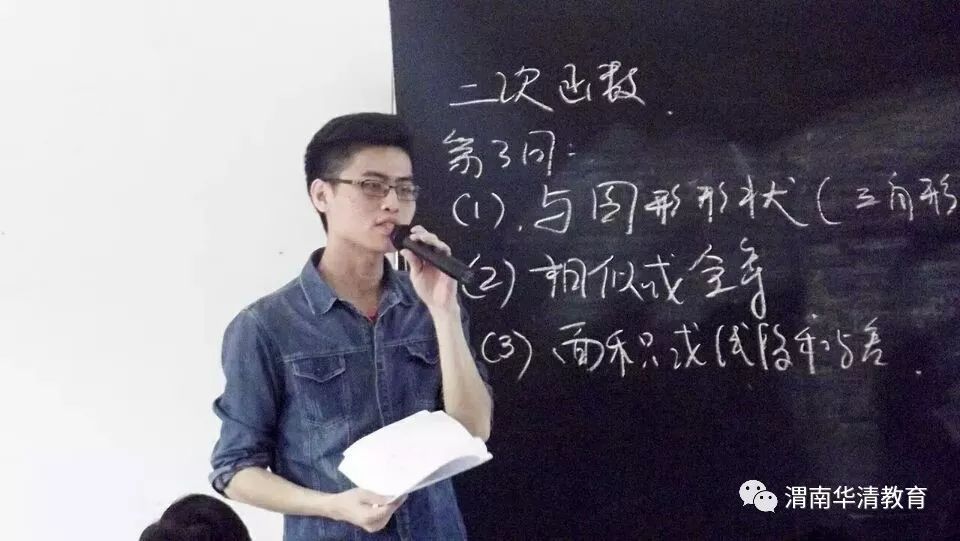 二次函数.
第3问:
(1).与图形形状(三角形
(2)相似或全等
(3)、面积或线段和与差.
渭南华清教育